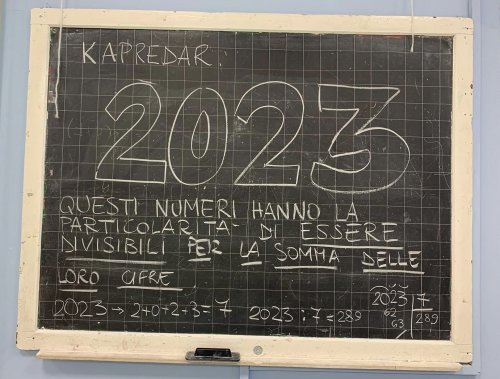 KAPREDAR:
2023
QUESTI NUMERI HANNO LA
PARTICOLARITA' DI ESSERE
DIVISIBILI PER LA SOMMA DELLE
LORO CIFRE
2023 → 2+0+2+3=7 2023:7=289
2023 7
62 289
63